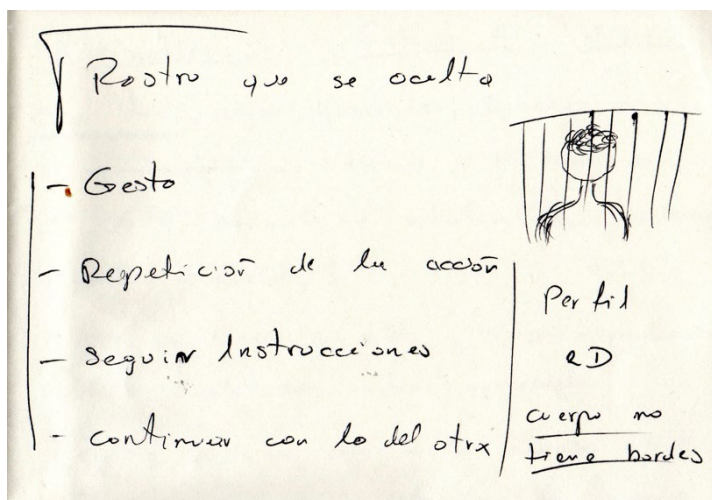 Rostro que se oculta
- Gesto
- Repetición de la acción
- Seguir Instrucciones
- continuar con lo del otrx
Perfil
2D
cuerpo no
tiene bordes